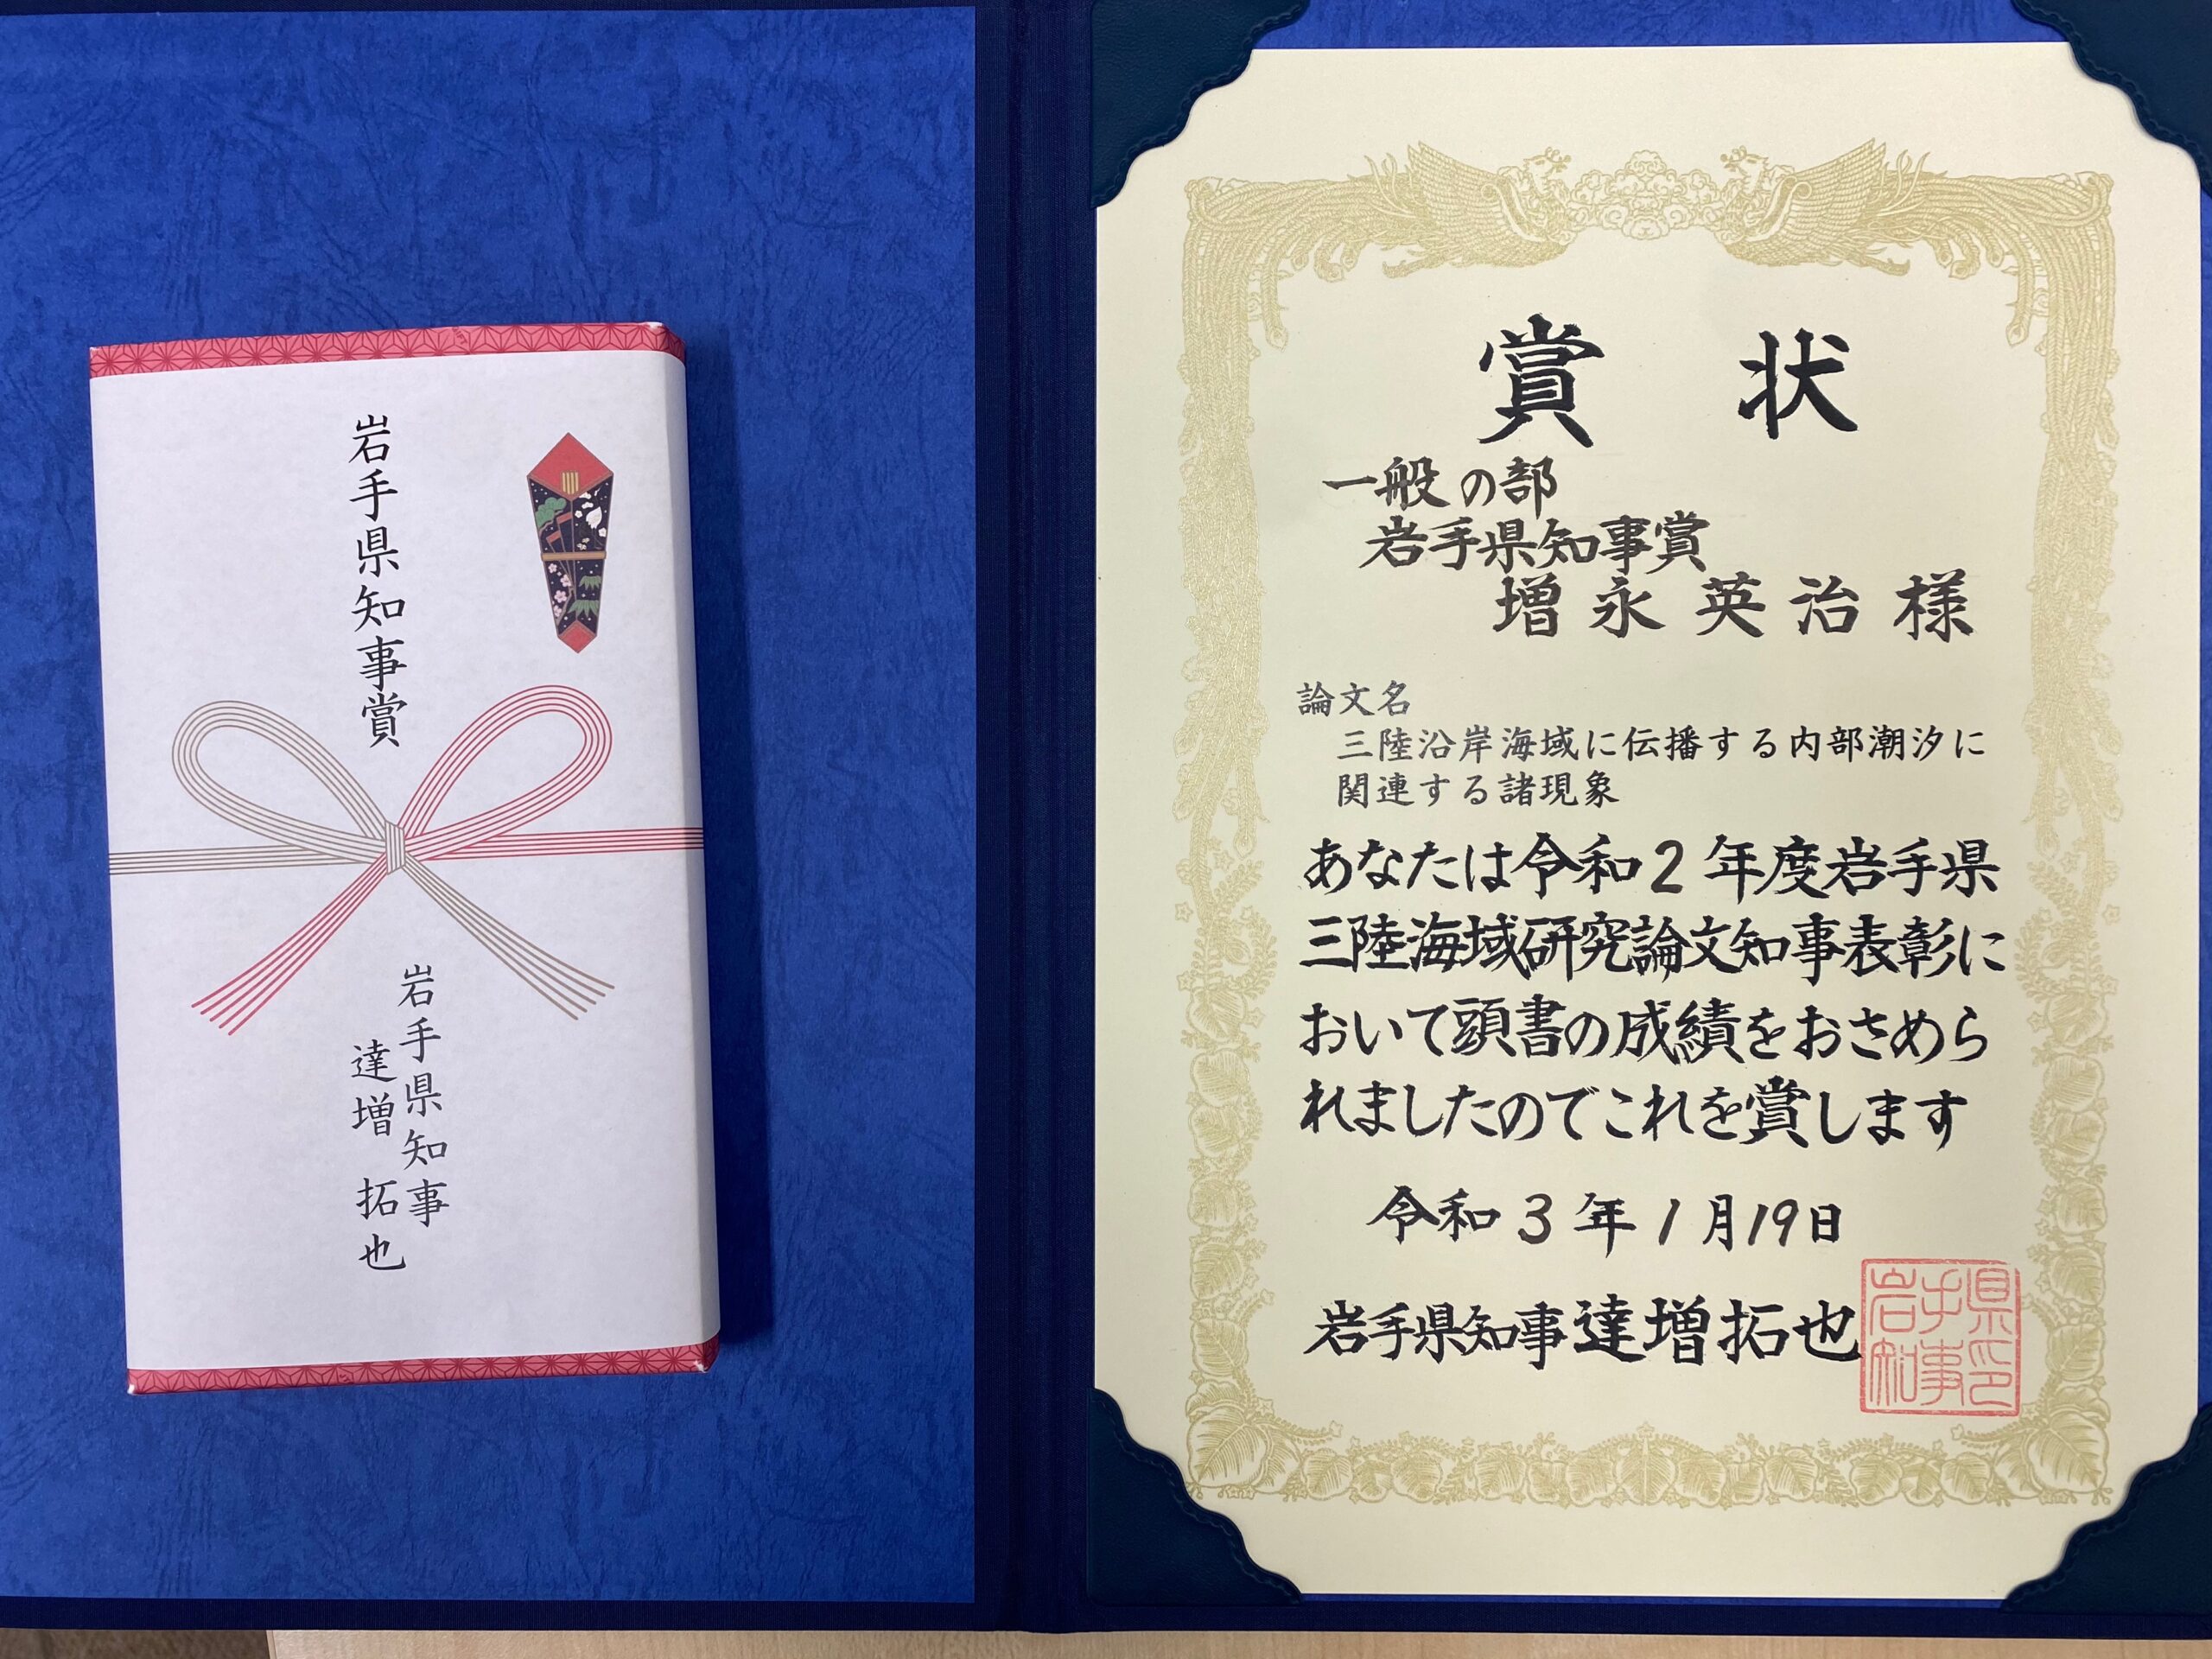 岩手県知事賞
岩手県知事
達増 拓也
賞 状
一般の部
岩手県知事賞
増永英治様
論文名
三陸沿岸海域に伝播する内部潮汐に
関連する諸現象
あなたは令和2年度岩手県
三陸海域研究論文知事表彰に
おいて頭書の成績をおさめら
れましたのでこれを賞します
令和3年1月19日
岩手県知事達増拓也
岩手県
知事印